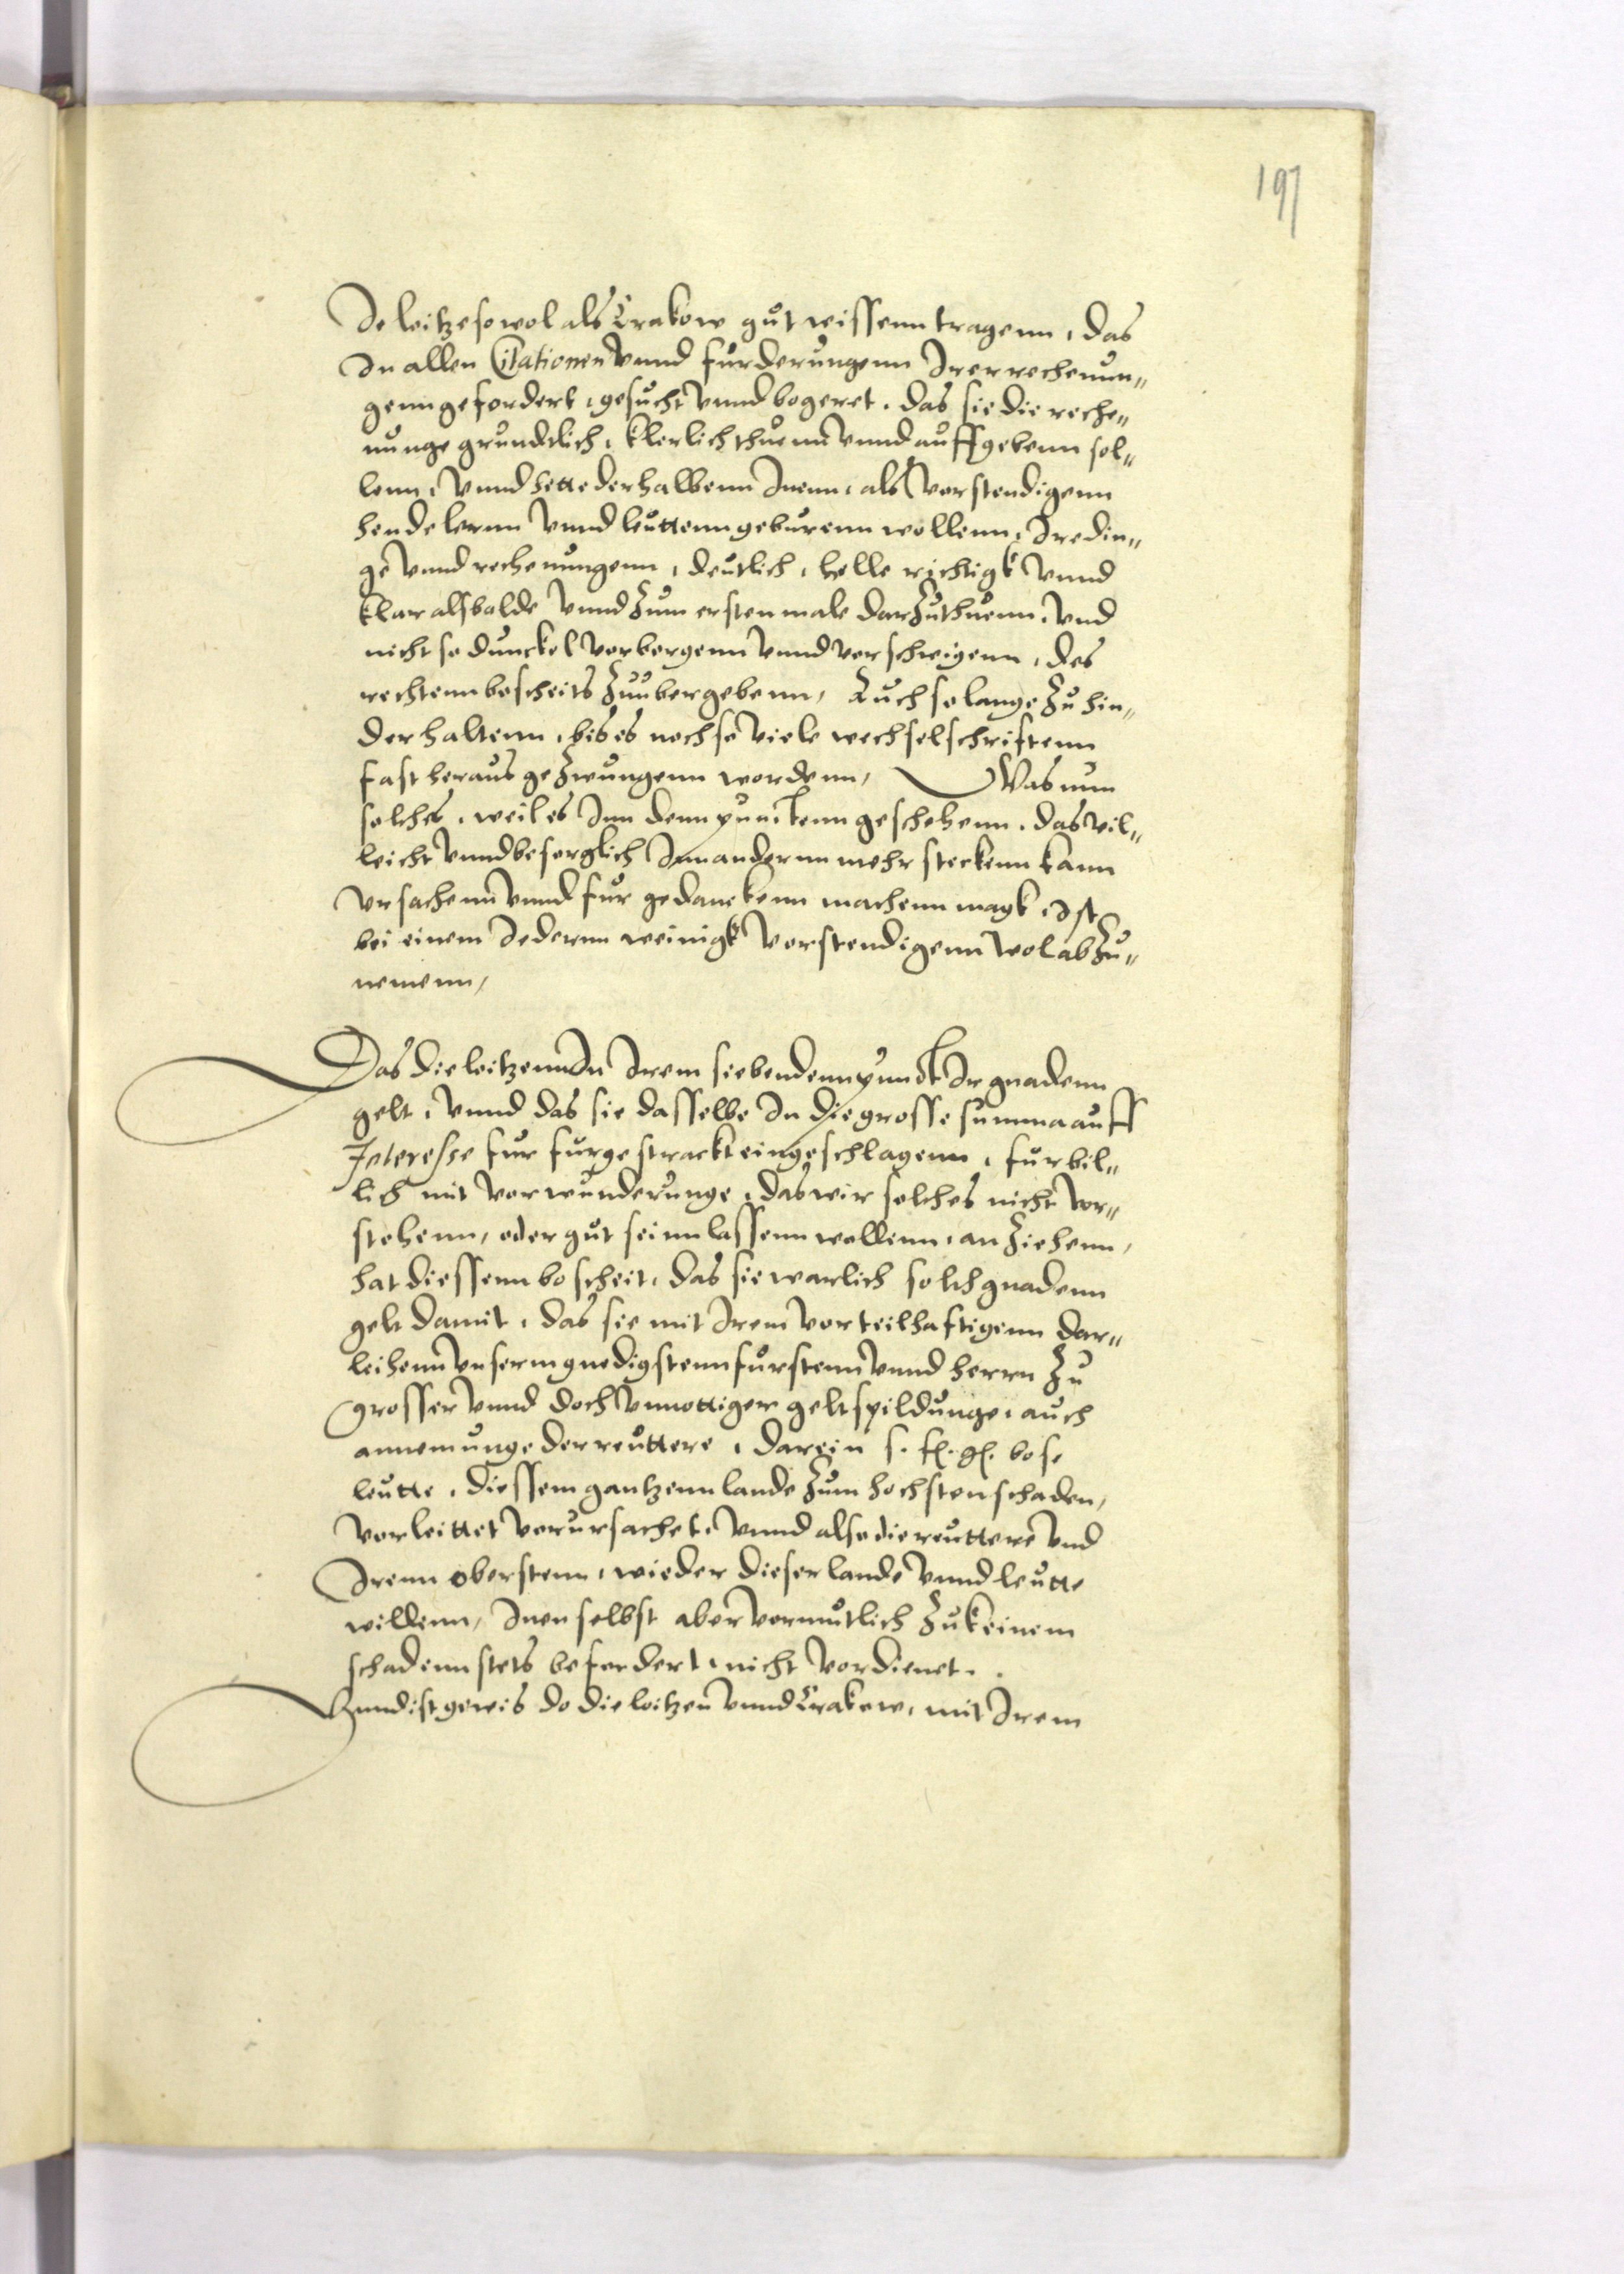 197
De loitze so wol als Krakow gut wissenn tragenn, das
In allen Citationen vnnd furderungenn Irer rechenun„
genn gefordert, gesucht vnnd bogeret. das sie die reche„
nunge grundtlich, klerlich thuenn vnnd auffgebenn sol„
lenn, vnnd hette derhalbenn Inenn, als vorstendigenn
hendelernn vnnd leuttenn geburenn wollenn, Ire din„
ge vnnd rechenungenn, deutlich, helle richtigk vnnd
klar alsbalde vnnd zum ersten male darzuthuenn, vnd
nicht so dunckel vorbergenn vnnd vorschweigenn, des
rechtenn bescheits zuubergebenn, Auch so lange zu hin„
derhaltenn, bis es noch so viele wechselschriftenn
fast heraus gezwungenn wordenn, Was nun
solches, weil es Inn denn punctenn geschehenn, das vil„
leicht vnnd besorglich Inn andernn mehr steckenn kann
vrsachenn vnnd fur gedanckenn machenn magk, Ist
bei einem Iedernn weinigk vorstendigenn wol abzu„
nemenn,
Das die loitzenn In Irem siebendenn punckt Ir gnadenn
gelt, vnnd das sie dasselbe In die grosse summa auff
Interesse fur furgestrackt eingeschlagenn, fur bil„
lich mit vorwunderunge, das wir solches nicht vor„
stehenn, oder gut seinn lassenn wollenn, anziehenn,
hat diessenn boscheit, das sie warlich solch gnadenn
gelt damit, das sie mit Irem vorteilhaftigenn dar„
leihenn vnserm gnedigstenn furstenn vnnd herrn zu
grosser vnnd doch vnnottiger geltspildunge, auch
annemunge der reuttere, darein s. f. g. bose
leutte, diessem gantzenn lande zum hochsten schaden,
vorleittet vorursachet, vnnd also die reuttere vnd
Irenn oberstenn, wieder dieser lande vnnd leutte
willenn, Inen selbst aber vormutlich zu keinem
schadenn stets befordert, nicht vordienet.
Vnnd ist gewis do die loitzen vnnd Krakow, mit Irem